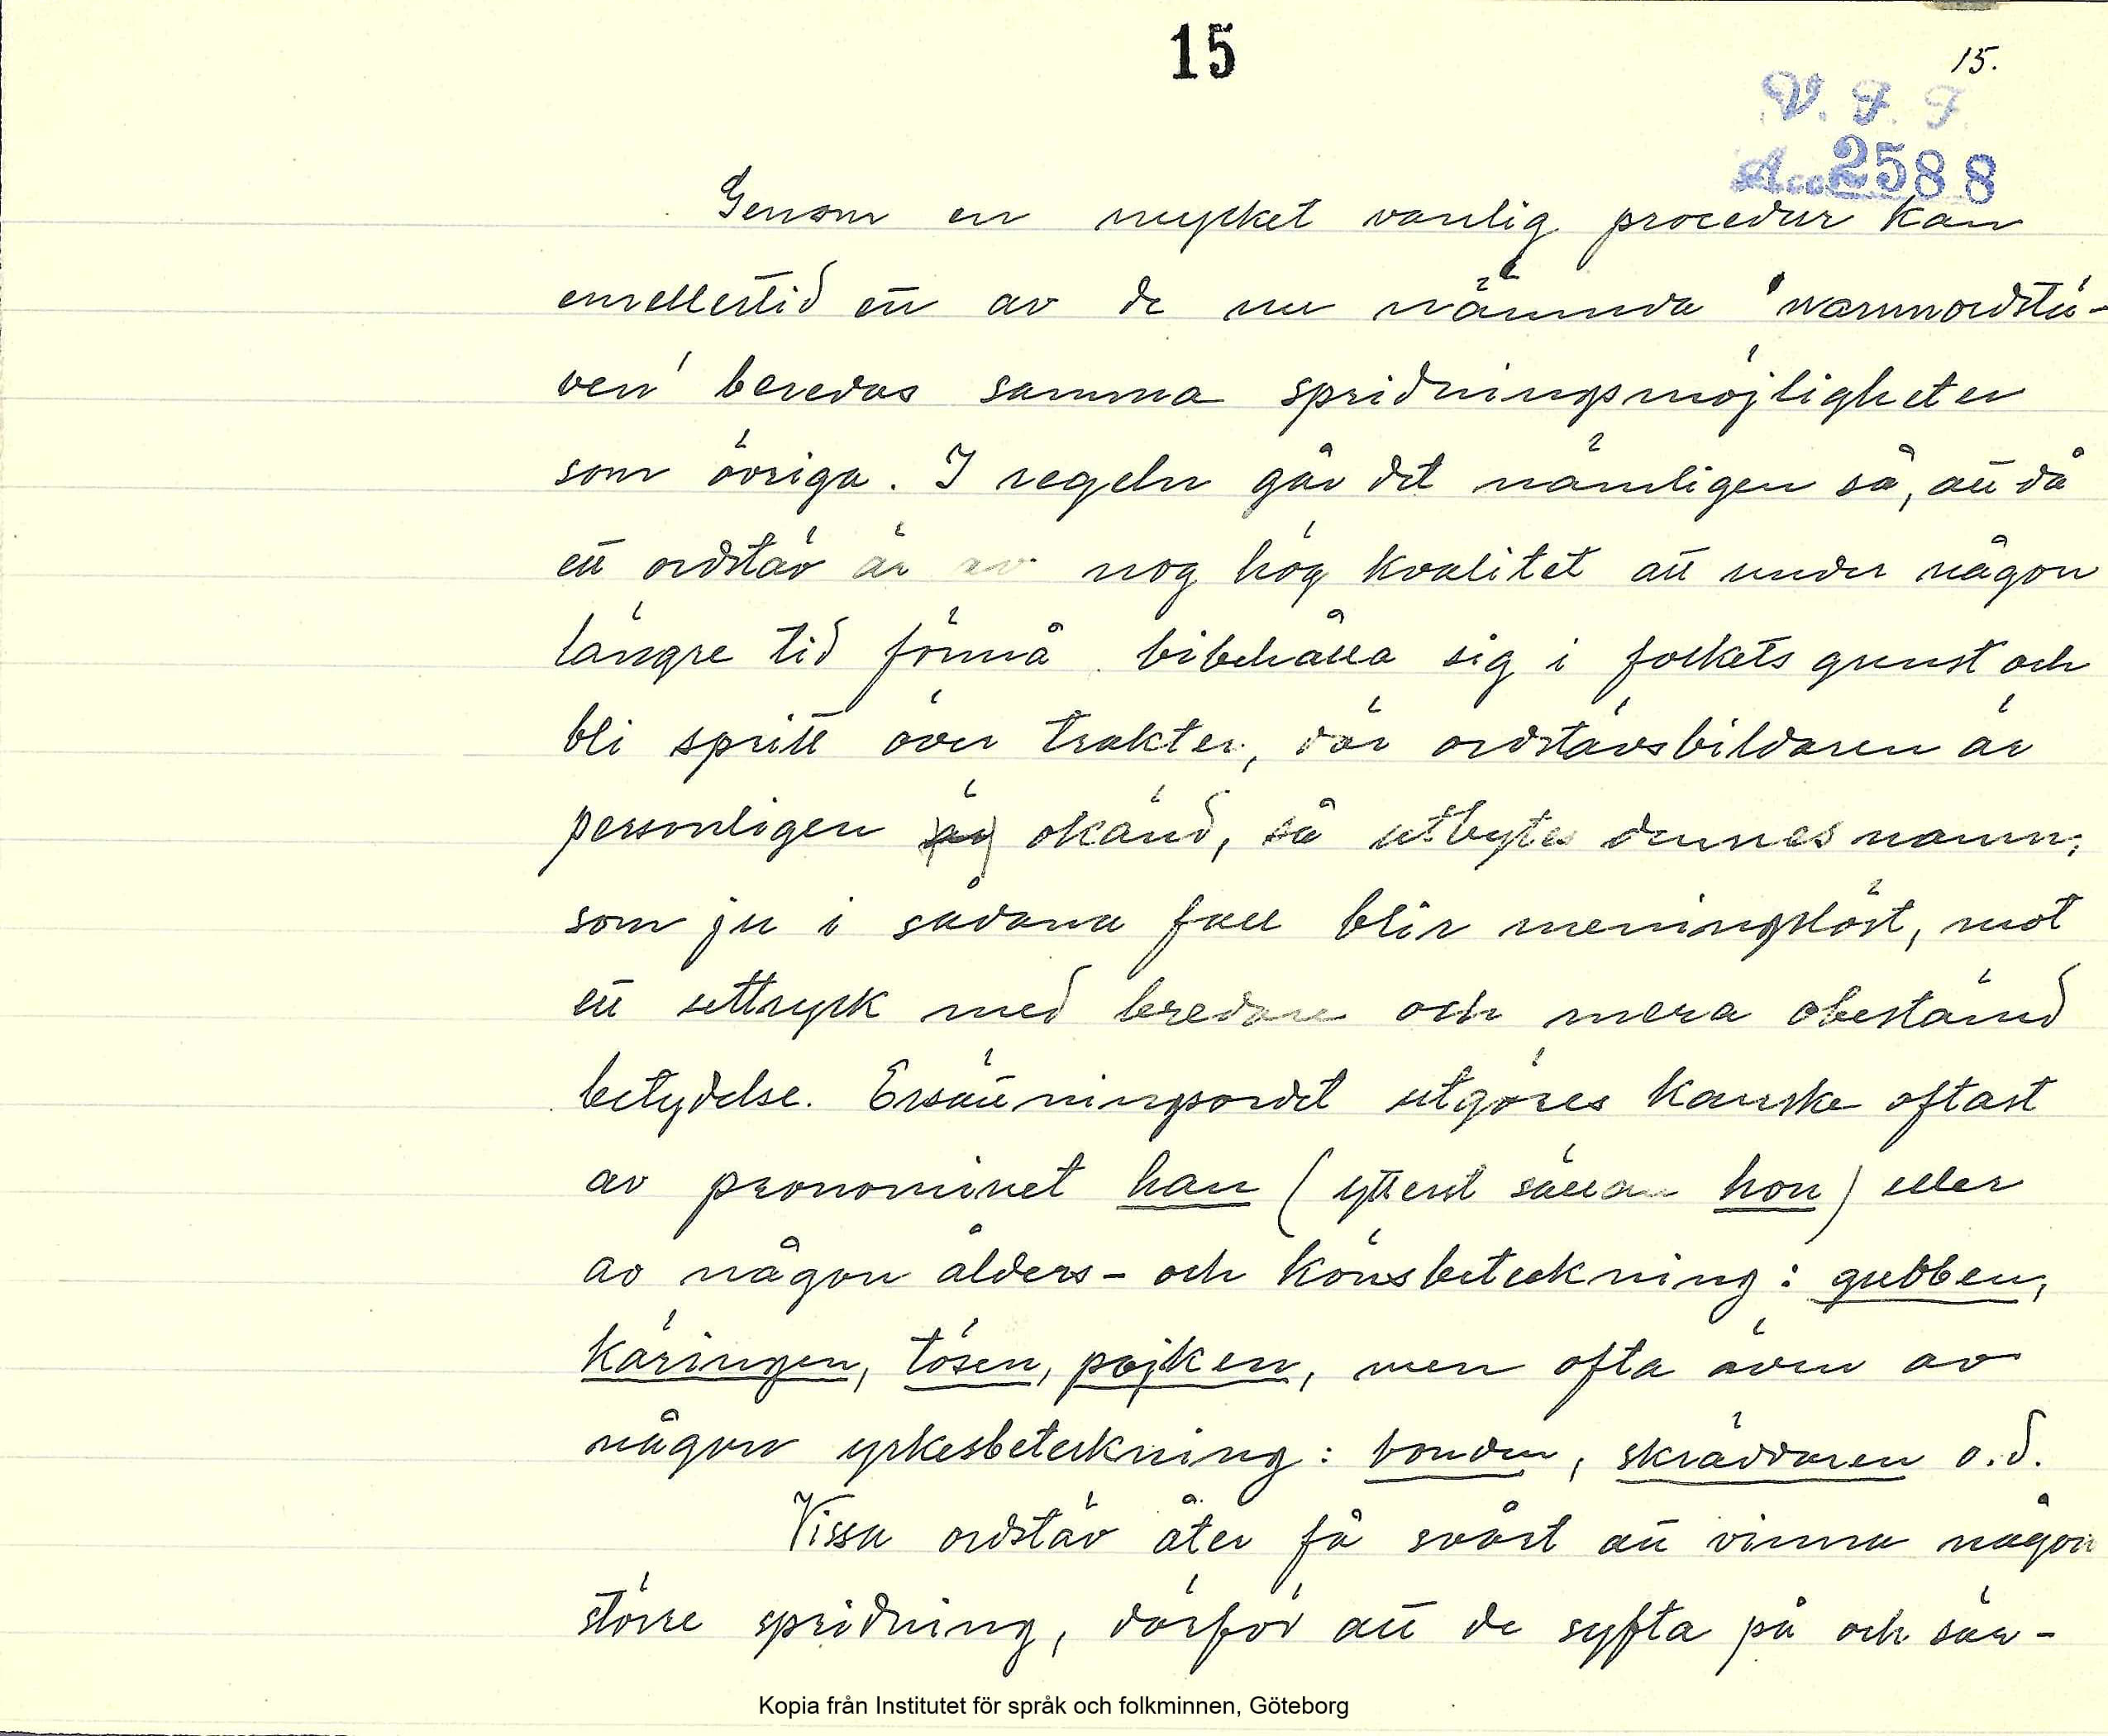 15
15.
V. F. F.
Acc. 2588
Genom en mycket vanlig procedur kan
emellertid ett av de nu nämnda 'namnordstä-
ven' beredas samma spridningsmöjligheter
som övriga. I regeln går det nämligen så, att då
ett ordstäv är av nog hög kvalitet att under någon
längre tid förmå bibehålla sig i folkets gunst och
bli spritt över trakter, där ordstävsbildaren är
personligen okänd, så utbytes dennes namn,
som ju i sådana fall blir meningslöst, mot
ett uttryck med bredare och mera obestämd
betydelse. Ersättningsordet utgöres kanske oftast
av pronominet han (ytterst sällan hon) eller
av någon ålders- och könsbeteckning: gubben,
käringen, tösen, pojken, men ofta även av
någon yrkesbeteckning: bonden, skräddaren o.d.
Vissa ordstäv åter få svårt att vinna någon
större spridning, därför att de syfta på och sär-
Kopia från Institutet för språk och folkminnen, Göteborg